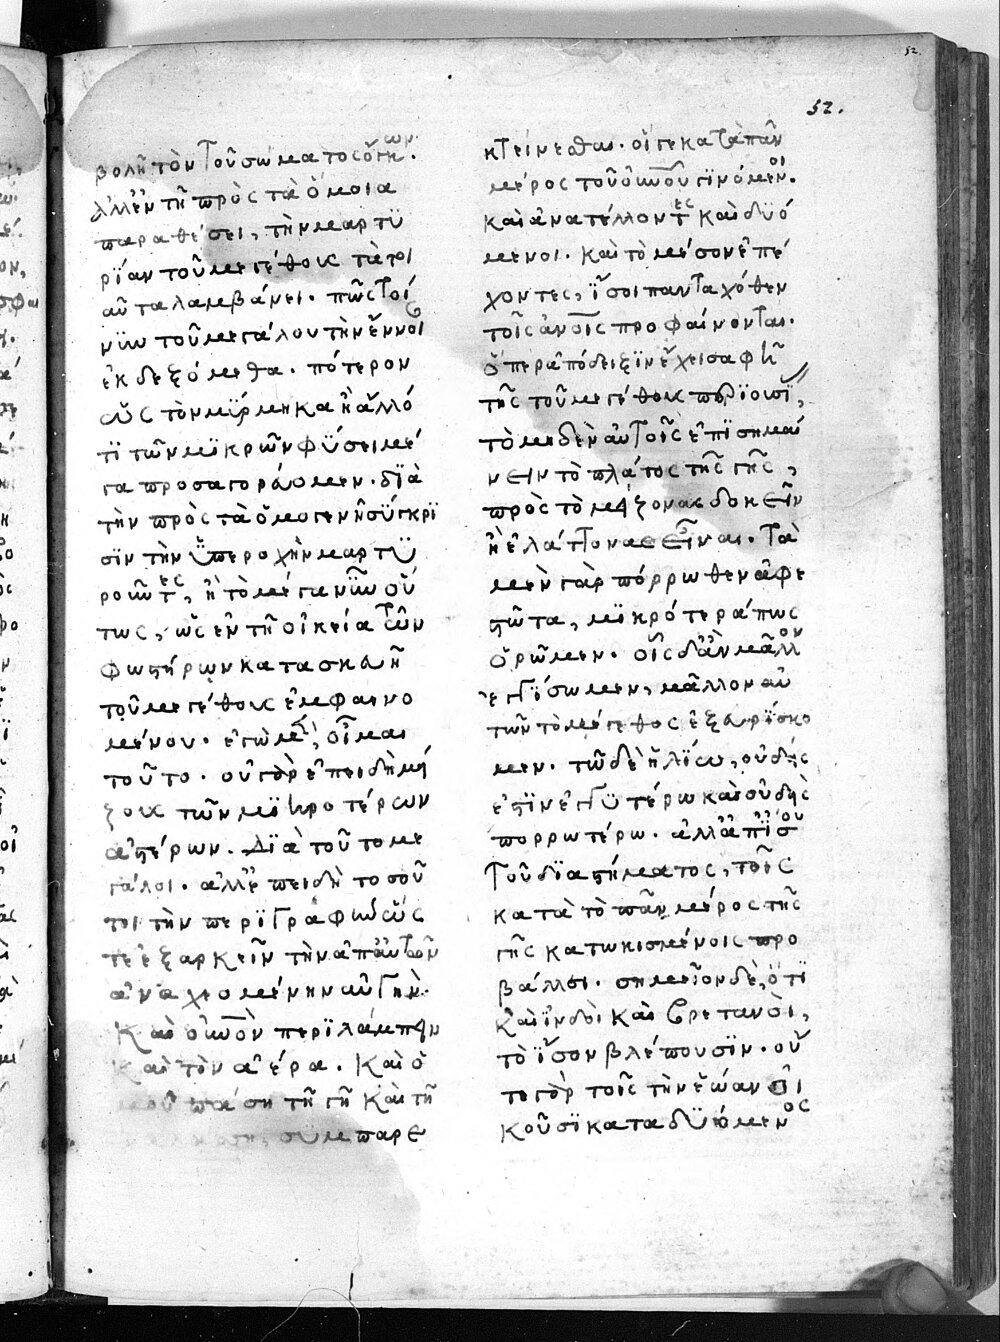 52
52.
βολῆ τὸν τοῦ σώματος ὄγκων.
ἀλλ' ἐν τῆ πρὸς τὰ ὅμοια
παραθέσει, τὴν μαρτϋ
ρίαν τοῦ μεγέθους τὰ τοι
αῦτα λαμβάνει. πῶς τοί
νϋν τοῦ μεγάλου τὴν ἔννοι
ἐκδεξόμεθα. πότερον
ὡς τὸν μΰρμηκα ἢ ἄλλό
τϊ τῶν μϊκρῶν φΰσει μέ
γα προσαγορεύομεν. δϊὰ
τὴν πρὸς τὰ ὁμογενῆ σύγκρϊ
σϊν τὴν ὕπεροχὴν μαρτϋ
ροῦντες, ἢ τὸ μέγα νῦν οὕ
τως, ὡς ἐν τῆ οἰκεία τῶν
φωστήρων κατασκευῆ
τοῦ μεγέθους ἐμφαινο
μένου. ἐγὼ μὲν, οἶμαι
τοῦτο. οὐ γὰρ ἐπειδὴ μεί
ζους τῶν μϊκροτέρων
ἀστέρων. Διὰ τοῦτο με
γάλοι. ἀλλ' ἐπειδὴ τοσοῦ
τοι τὴν περϊγραφὴν ὥς
τε ἐξαρκεῖν τὴν ἀπ' αὐτῶν
ἀναχεομένην αὐγὴν.
Καὶ οὐνὸν περϊλάμπειν
Καὶ τὸν ἀέρα. Καὶ ὁ
μοῦ πάση τῆ γῆ Καὶ τῆ
συμπαρε
κτείνεσθαι. οἵ γε κατὰ πᾶν
μέρος τοῦ οὐνοῦ γϊνόμενοι.
Καὶ ἀνατέλλοντες Καὶ δϋό
μενοι. Καὶ τὸ μέσον ἐπέ
χοντες, ἴσοι πανταχόθεν
τοῖς ἀνοις προφαίνονται.
ὅπερ ἀπόδειξϊν ἔχει σαφῆ
τῆς τοῦ μεγέθους περϊουσί,
τὸ μηδὲν αὐτοῖς ἐπϊσημαί
νειν τὸ πλάτος τῆς γῆς,
πρὸς τὸ μείζονας δοκεῖν
ἢ ἐλάττονας εἶναι. Τὰ
μὲν γὰρ πόρρωθεν ἀφε
στῶτα, μϊκρότερά πως
ὁρῶμεν. οἷς δ' ἂν μᾶλλον
ἐγγίσωμεν, μᾶλλον αὐ
τῶν τὸ μέγεθος ἐξευρίσκο
μεν. τῶ δὲ ἡλίω, οὐδείς
ἐστϊν ἐγγϋτέρω καὶ οὐδεὶς
πορρωτέρω. ἀλλ' ἀπ' ΐσου
Τοῦ διαστήματος, τοῖς
κατὰ τὸ πᾶν μέρος τῆς
γῆς κατωκισμένοις προ
βάλλει. σημεῖον δὲ, ὅτϊ
Καὶ ϊνδοὶ Καὶ βρετανοὶ,
τὸ ἴσον βλέπουσϊν. οὔ
τε γὰρ τοῖς τὴν ἑώαν οἰ
Κοῦσϊ καταδϋόμενος